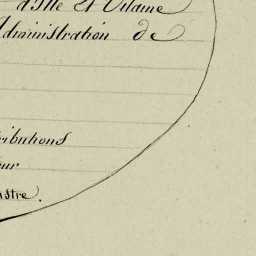 d'Ille Et Vilaine
Administration de
ributions
eur
astre.